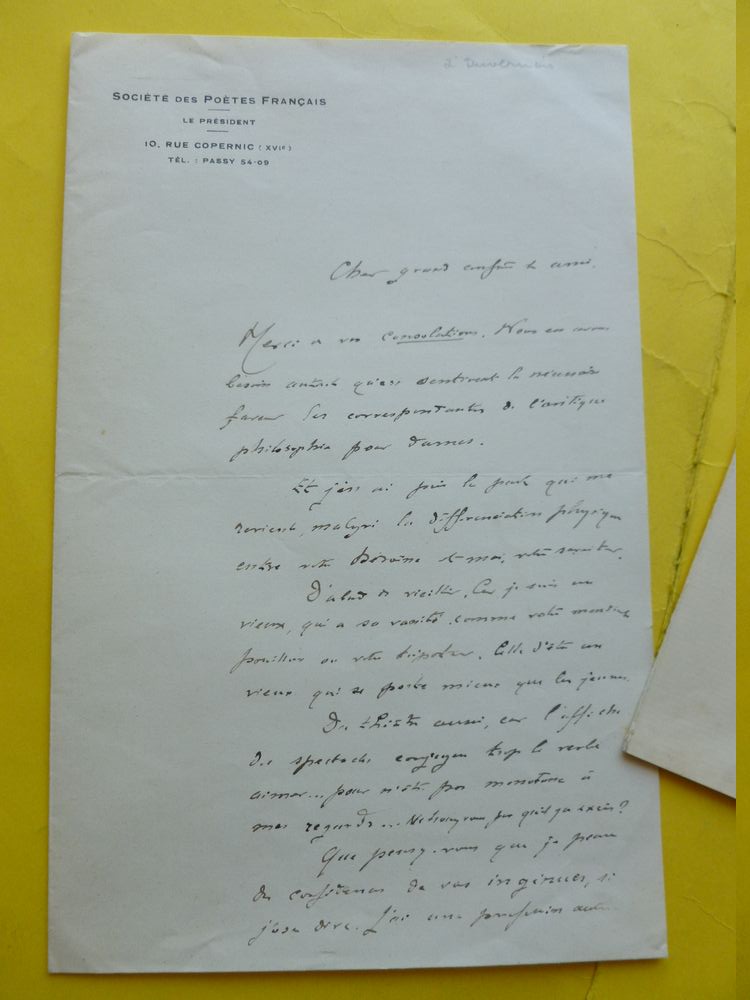 SOCIÉTÉ DES POÈTES FRANÇAIS
LE PRÉSIDENT
10, RUE COPERNIC (XVIe)
TÉL. : PASSY 54-09
Cher grand confrère et ami.
Merci de vos consolations. Nous en avons
besoin autant qu'en
les correspondantes de l'antique
philosophie pour dames.
Et j'en ai pris la part qui me
revient, malgré la différenciation physique
entre votre héroïne et moi, votre
D'abord de vieillir. Car je suis un
vieux, qui a sa vanité comme votre
ou votre Celle d'être un
vieux qui se porte mieux que les jeunes.
Du théâtre aussi, car l'affiche
des spectacles conjugue trop le verbe
aimer... pour n'être pas monotone à
mes regards... Ne trouvez-vous pas qu'il y a excès?
Que pensez-vous que je pense
des confidences de vos ingénues, si
j'ose dire. J'ai une